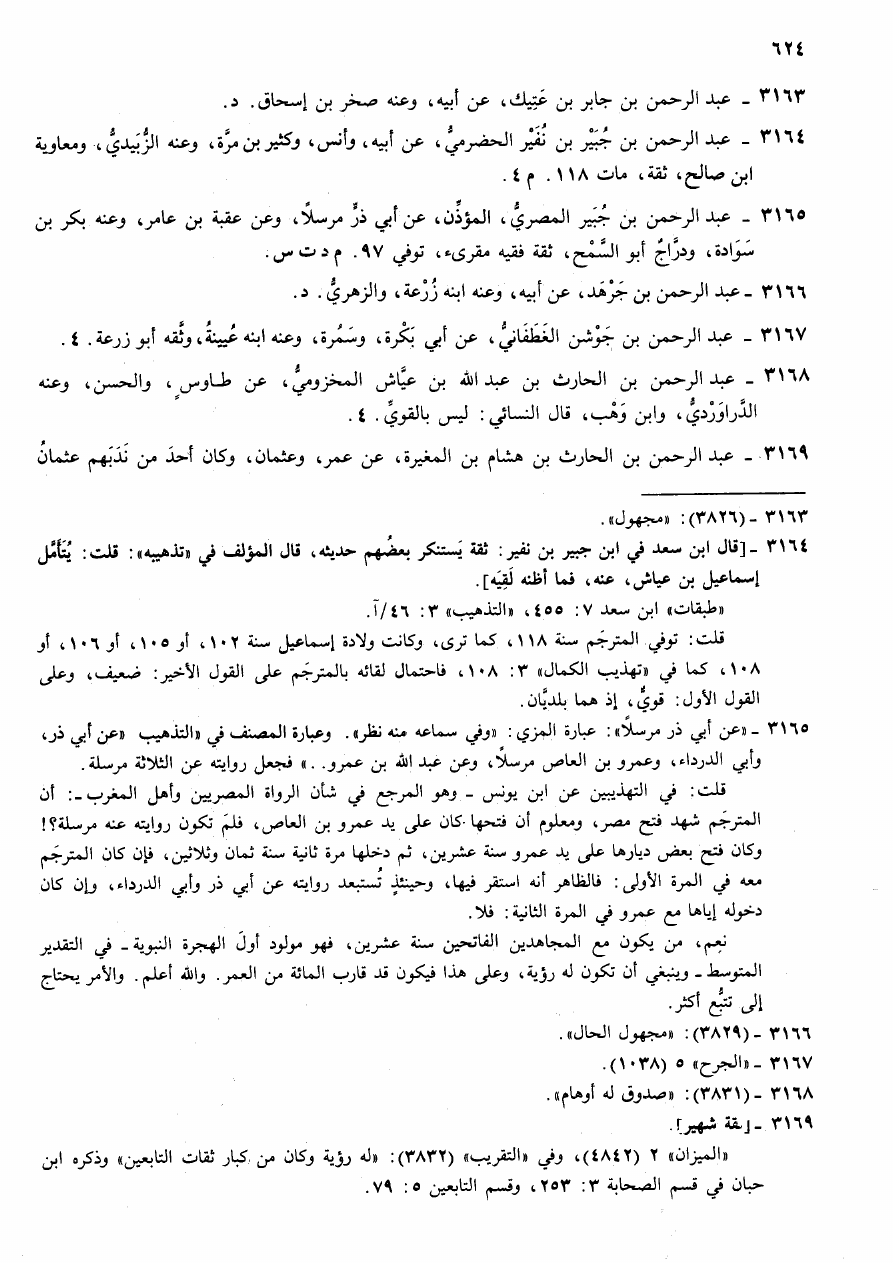 ٦٢٤
٣١٦٣ ـ عبد الرحمن بن جابر بن عَتِيك، عن أبيه، وعنه صخر بن إسحاق. د.
٣١٦٤ ـ عبد الرحمن بن جُبَيْر بن نُفَيْر الحضرميُّ، عن أبيه، وأنس، وكثير بن مرَّة، وعنه الزُّبَيديُّ، ومعاوية
ابن صالح، ثقة، مات ١١٨. م ٤.
٣١٦٥ ـ عبد الرحمن بن جُبَير المصريُّ، المؤذِّن، عن أبي ذرٍّ مرسلًا، وعن عقبة بن عامر، وعنه بكر بن
سَوَادة، ودرَّاجٌ أبو السَّمْح، ثقة فقيه مقرىء، توفي ٩٧. م د ت س.
٣١٦٦ ـ عبد الرحمن بن جَرْهَد، عن أبيه، وعنه ابنه زُرْعة، والزهريُّ. د.
٣١٦٧ ـ عبد الرحمن بن جَوْشن الغَطَفَانيُّ، عن أبي بَكْرة، وسَمُرة، وعنه ابنه عُيينةُ، وثَّقه أبو زرعة. ٤.
٣١٦٨ ـ عبد الرحمن بن الحارث بن عبد الله بن عيَّاش المخزوميُّ، عن طاوسٍ، والحسن، وعنه
الدَّراوَرْديُّ، وابن وَهْب، قال النسائي: ليس بالقويِّ. ٤.
٣١٦٩ ـ عبد الرحمن بن الحارث بن هشام بن المغيرة، عن عمر، وعثمان، وكان أحدَ من نَدَبَهم عثمانُ
٣١٦٣ ـ (٣٨٢٦): «مجهول».
٣١٦٤ ـ [قال ابن سعد في ابن جبير بن نفير: ثقة يَستنكر بعضُهم حديثه، قال المؤلف في «تذهيبه»: قلت: يُتَأَمَّل
إسماعيل بن عياش، عنه، فما أظنه لَقِيَه].
«طبقات» ابن سعد ٧: ٤٥٥، «التذهيب» ٣: ٤٦/آ.
قلت: توفي المترجَم سنة ١١٨، كما ترى، وكانت ولادة إسماعيل سنة ١٠٢، أو ١٠٥، أو ١٠٦، أو
١٠٨، كما في «تهذيب الكمال» ٣: ١٠٨، فاحتمال لقائه بالمترجَم على القول الأخير: ضعيف، وعلى
القول الأول: قويٌّ، إذ هما بلديَّان.
٣١٦٥ ـ «عن أبي ذر مرسلًا»: عبارة المزي: «وفي سماعه منه نظر». وعبارة المصنف في «التذهيب «عن أبي ذر،
وأبي الدرداء، وعمرو بن العاص مرسلًا، وعن عبد الله بن عمرو..» فجعل روايته عن الثلاثة مرسلة.
قلت: في التهذيبين عن ابن يونس ـ وهو المرجع في شأن الرواة المصريين وأهل المغرب ـ: أن
المترجَم شهد فتح مصر، ومعلوم أن فتحها كان على يد عمرو بن العاص، فلمَ تكون روايته عنه مرسلة؟!
وكان فتح بعض ديارها على يد عمرو سنة عشرين، ثم دخلها مرة ثانية سنة ثمان وثلاثين، فإن كان المترجَم
معه في المرة الأولى: فالظاهر أنه استقر فيها، وحينئذٍ تُستبعد روايته عن أبي ذر وأبي الدرداء، وإن كان
دخوله إياها مع عمرو في المرة الثانية: فلا.
نعم، من يكون مع المجاهدين الفاتحين سنة عشرين، فهو مولود أولَ الهجرة النبوية ـ في التقدير
المتوسط ـ وينبغي أن تكون له رؤية، وعلى هذا فيكون قد قارب المائة من العمر. والله أعلم. والأمر يحتاج
إلى تتبُّع أكثر.
٣١٦٦ ـ (٣٨٢٩): «مجهول الحال».
٣١٦٧ ـ «الجرح» ٥ (١٠٣٨).
٣١٦٨ ـ (٣٨٣١): «صدوق له أوهام».
٣١٦٩ ـ [ثقة شهير].
«الميزان» ٢ (٤٨٤٢)، وفي «التقريب» (٣٨٣٢): «له رؤية وكان من كبار ثقات التابعين» وذكره ابن
حبان في قسم الصحابة ٣: ٢٥٣، وقسم التابعين ٥: ٧٩.